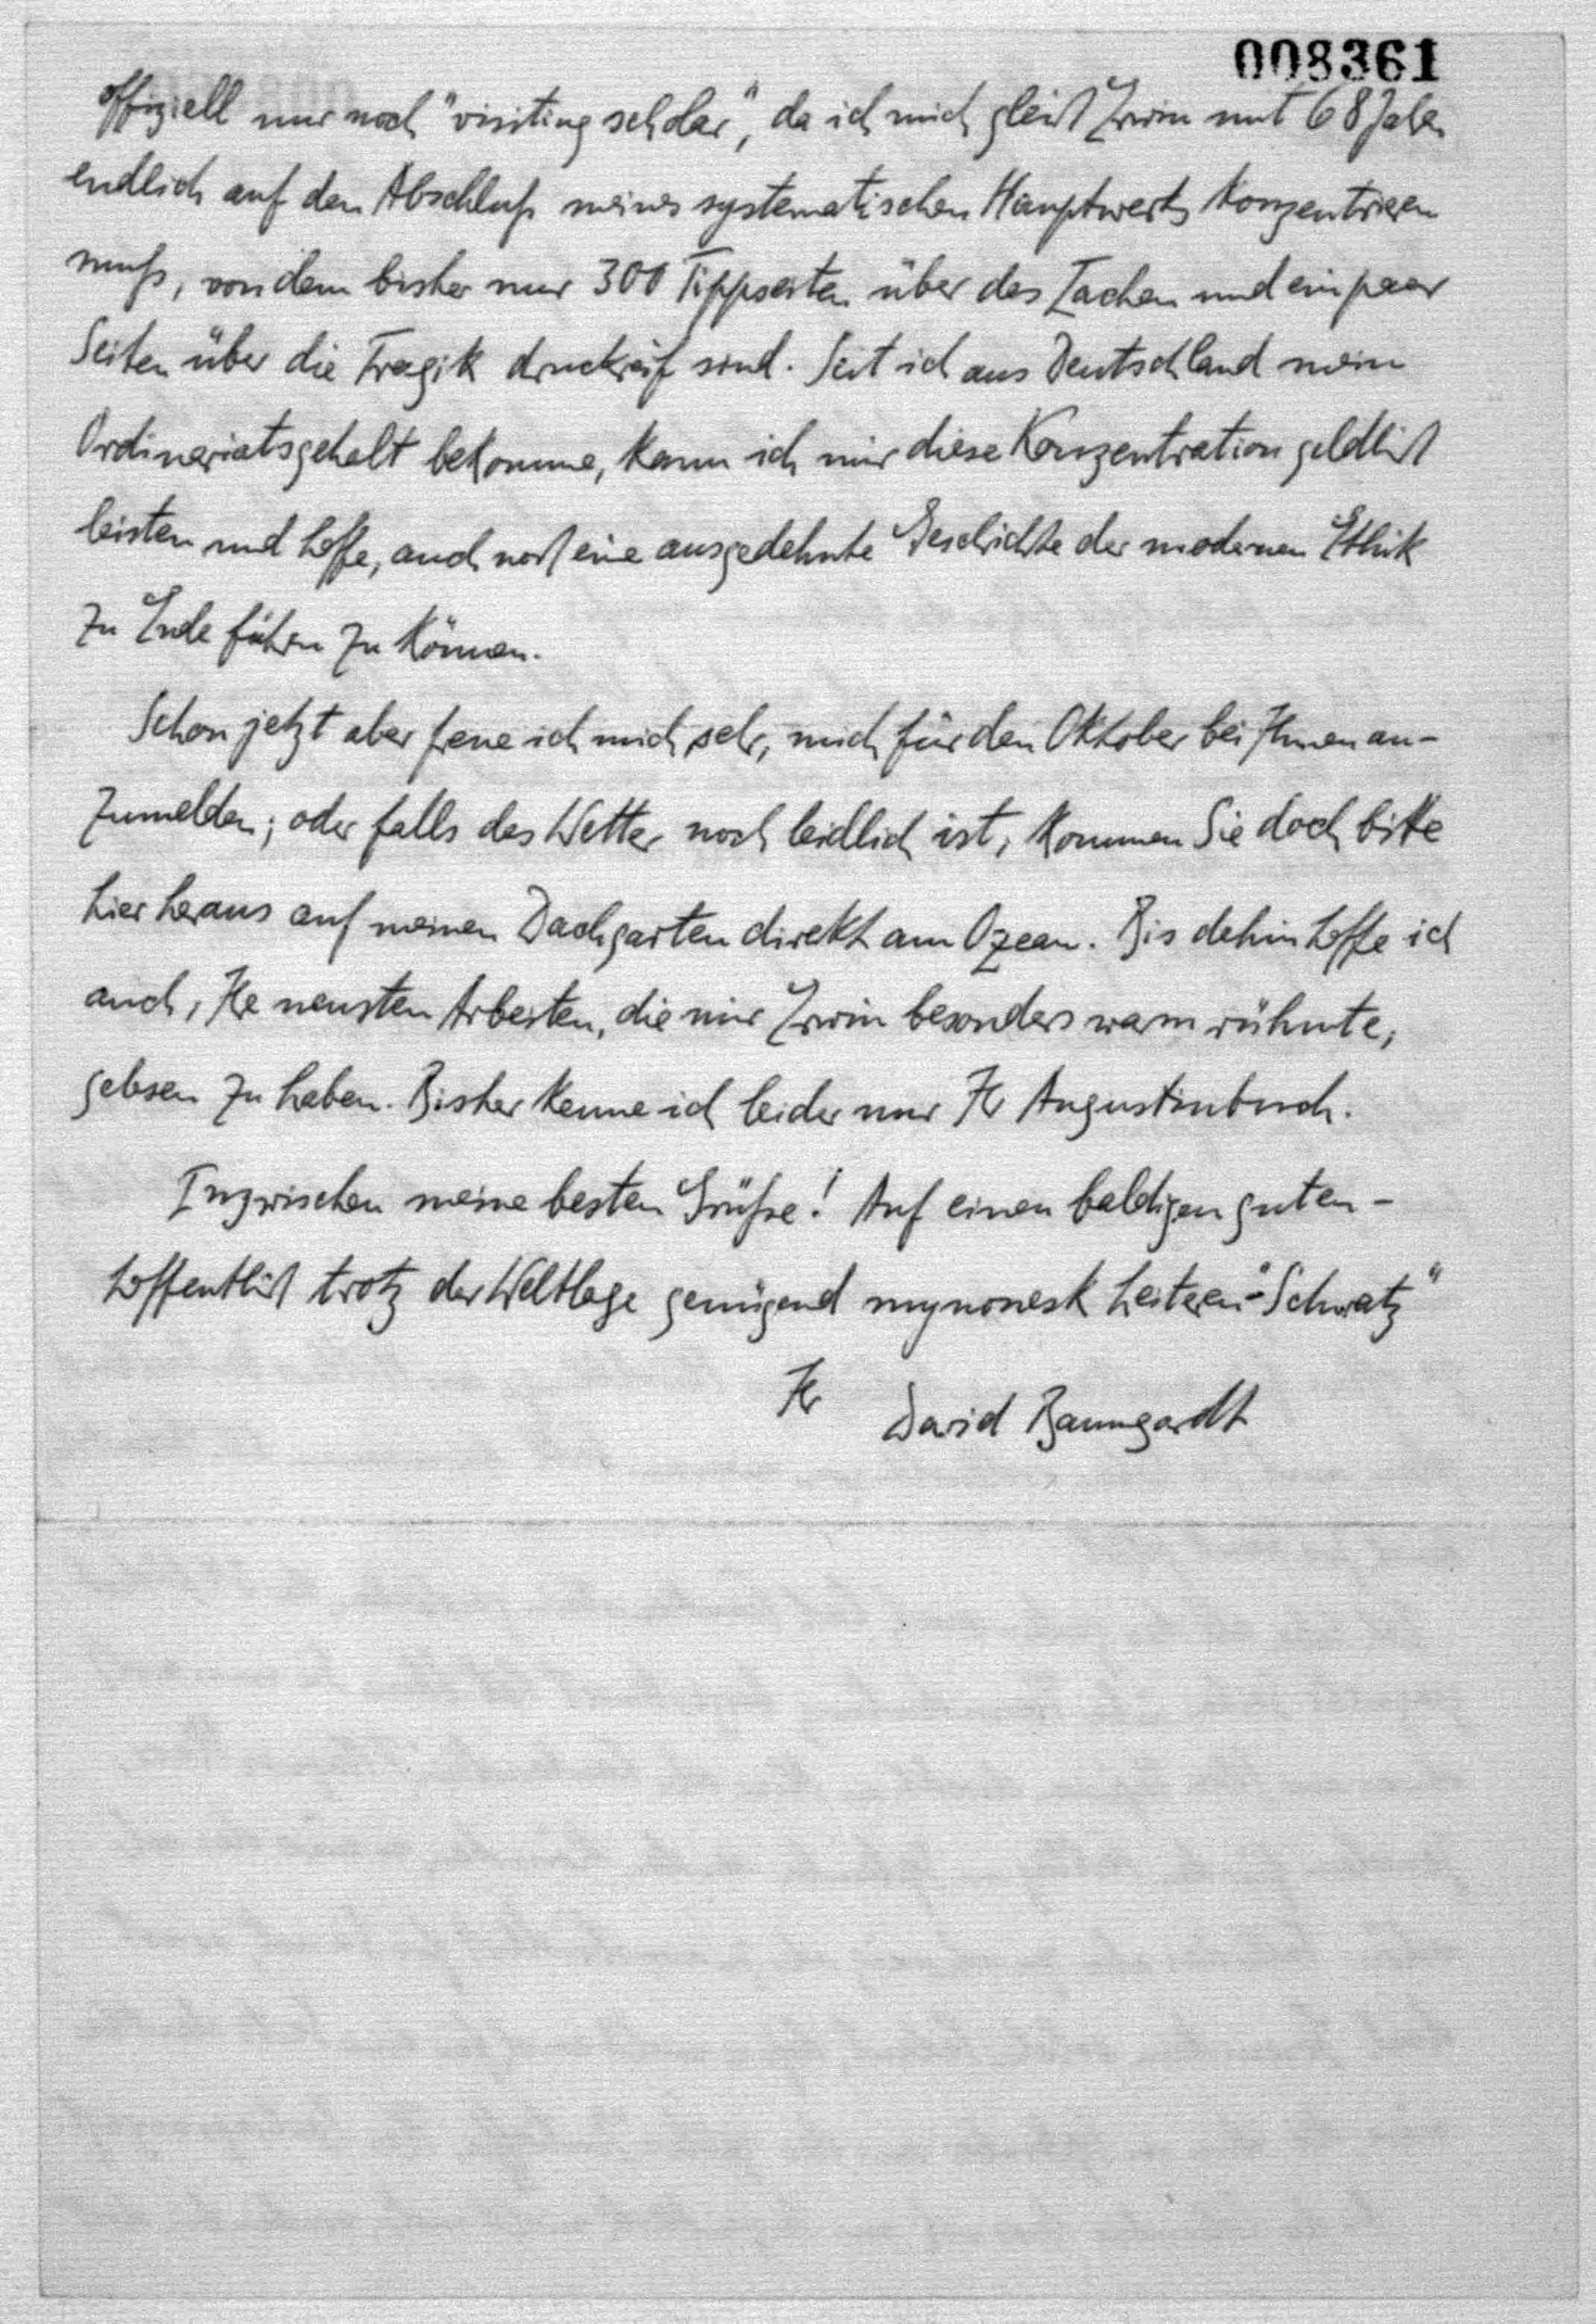 008361
offiziell nur noch "visiting scholar", da ich mich gleich Erwin mit 68 Jahren
endlich auf den Abschluß meines systematischen Hauptwerks konzentrieren
muß, von dem bisher nur 300 Tippseiten über das Lachen und ein paar
Seiten über die Tragik druckreif sind. Seit ich aus Deutschland mein
Ordinariatsgehalt bekomme, kann ich mir diese Konzentration geldlich
leisten und hoffe, auch noch eine ausgedehnte Geschichte der modernen Ethik
zu Ende führen zu können.
Schon jetzt aber freue ich mich sehr, mich für den Oktober bei Ihnen an-
zumelden; oder falls das Wetter noch leidlich ist, kommen Sie doch bitte
hier heraus auf meinen Dachgarten direkt am Ozean. Bis dahin hoffe ich
auch, Ihre neusten Arbeiten, die mir Erwin besonders warm rühmte,
gelesen zu haben. Bisher kenne ich leider nur Ihr Augustinbuch.
Inzwischen meine besten Grüße! Auf einen baldigen guten -
hoffentlich trotz der Weltlage genügend mynonesk heiteren - "Schwatz"
Ihr David Baumgardt